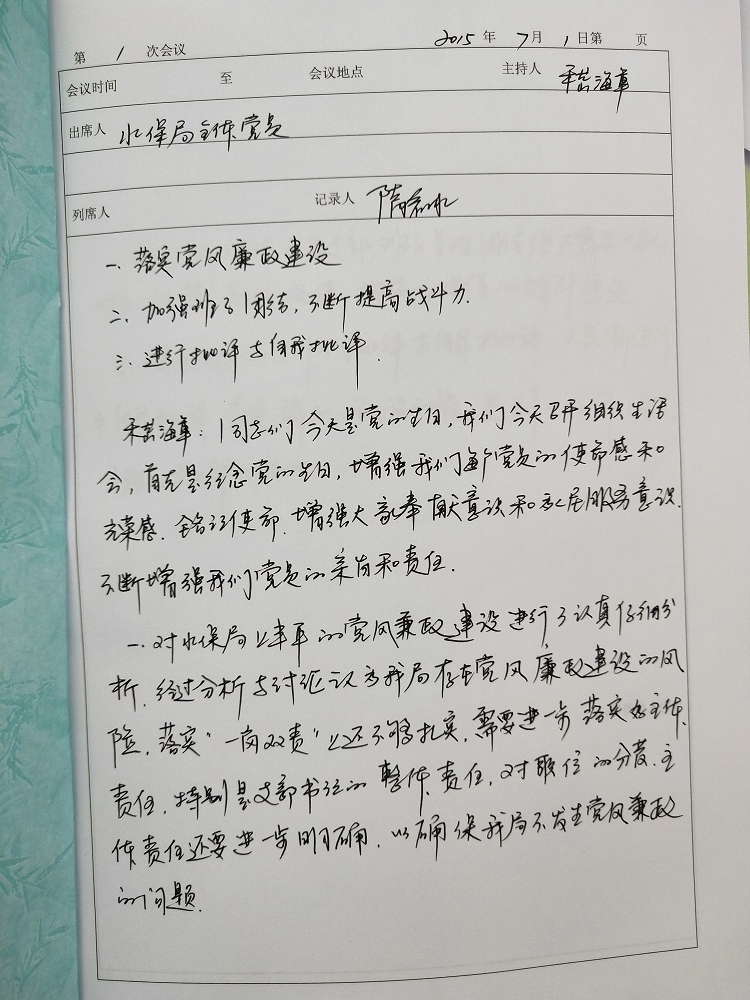 第 1 次会议 2015 年 7 月 1 日 第 页
会议时间 至 会议地点 主持人 海军
出席人 水保局全体党员
列席人 记录人 隋
一、落实党风廉政建设
二、加强班子团结，不断提高战斗力.
三、进行批评与自我批评.
海军：同志们今天是党的生日，我们今天召开组织生活
会，首先是纪念党的生日，增强我们每个党员的使命感和
光荣感. 铭记使命. 增强大家奉献意识和为民服务意识.
不断增强我们党员的素质和责任.
一、对水保局上半年的党风廉政建设进行了认真仔细分
析. 经过分析与讨论认为我局存在党风廉政建设的风
险，落实“一岗双责”上还不够扎实，需要进一步落实好主体
责任，特别是支部书记的整体责任，对职位的分散、主
体责任还要进一步明确，以确保我局不发生党风廉政
的问题.